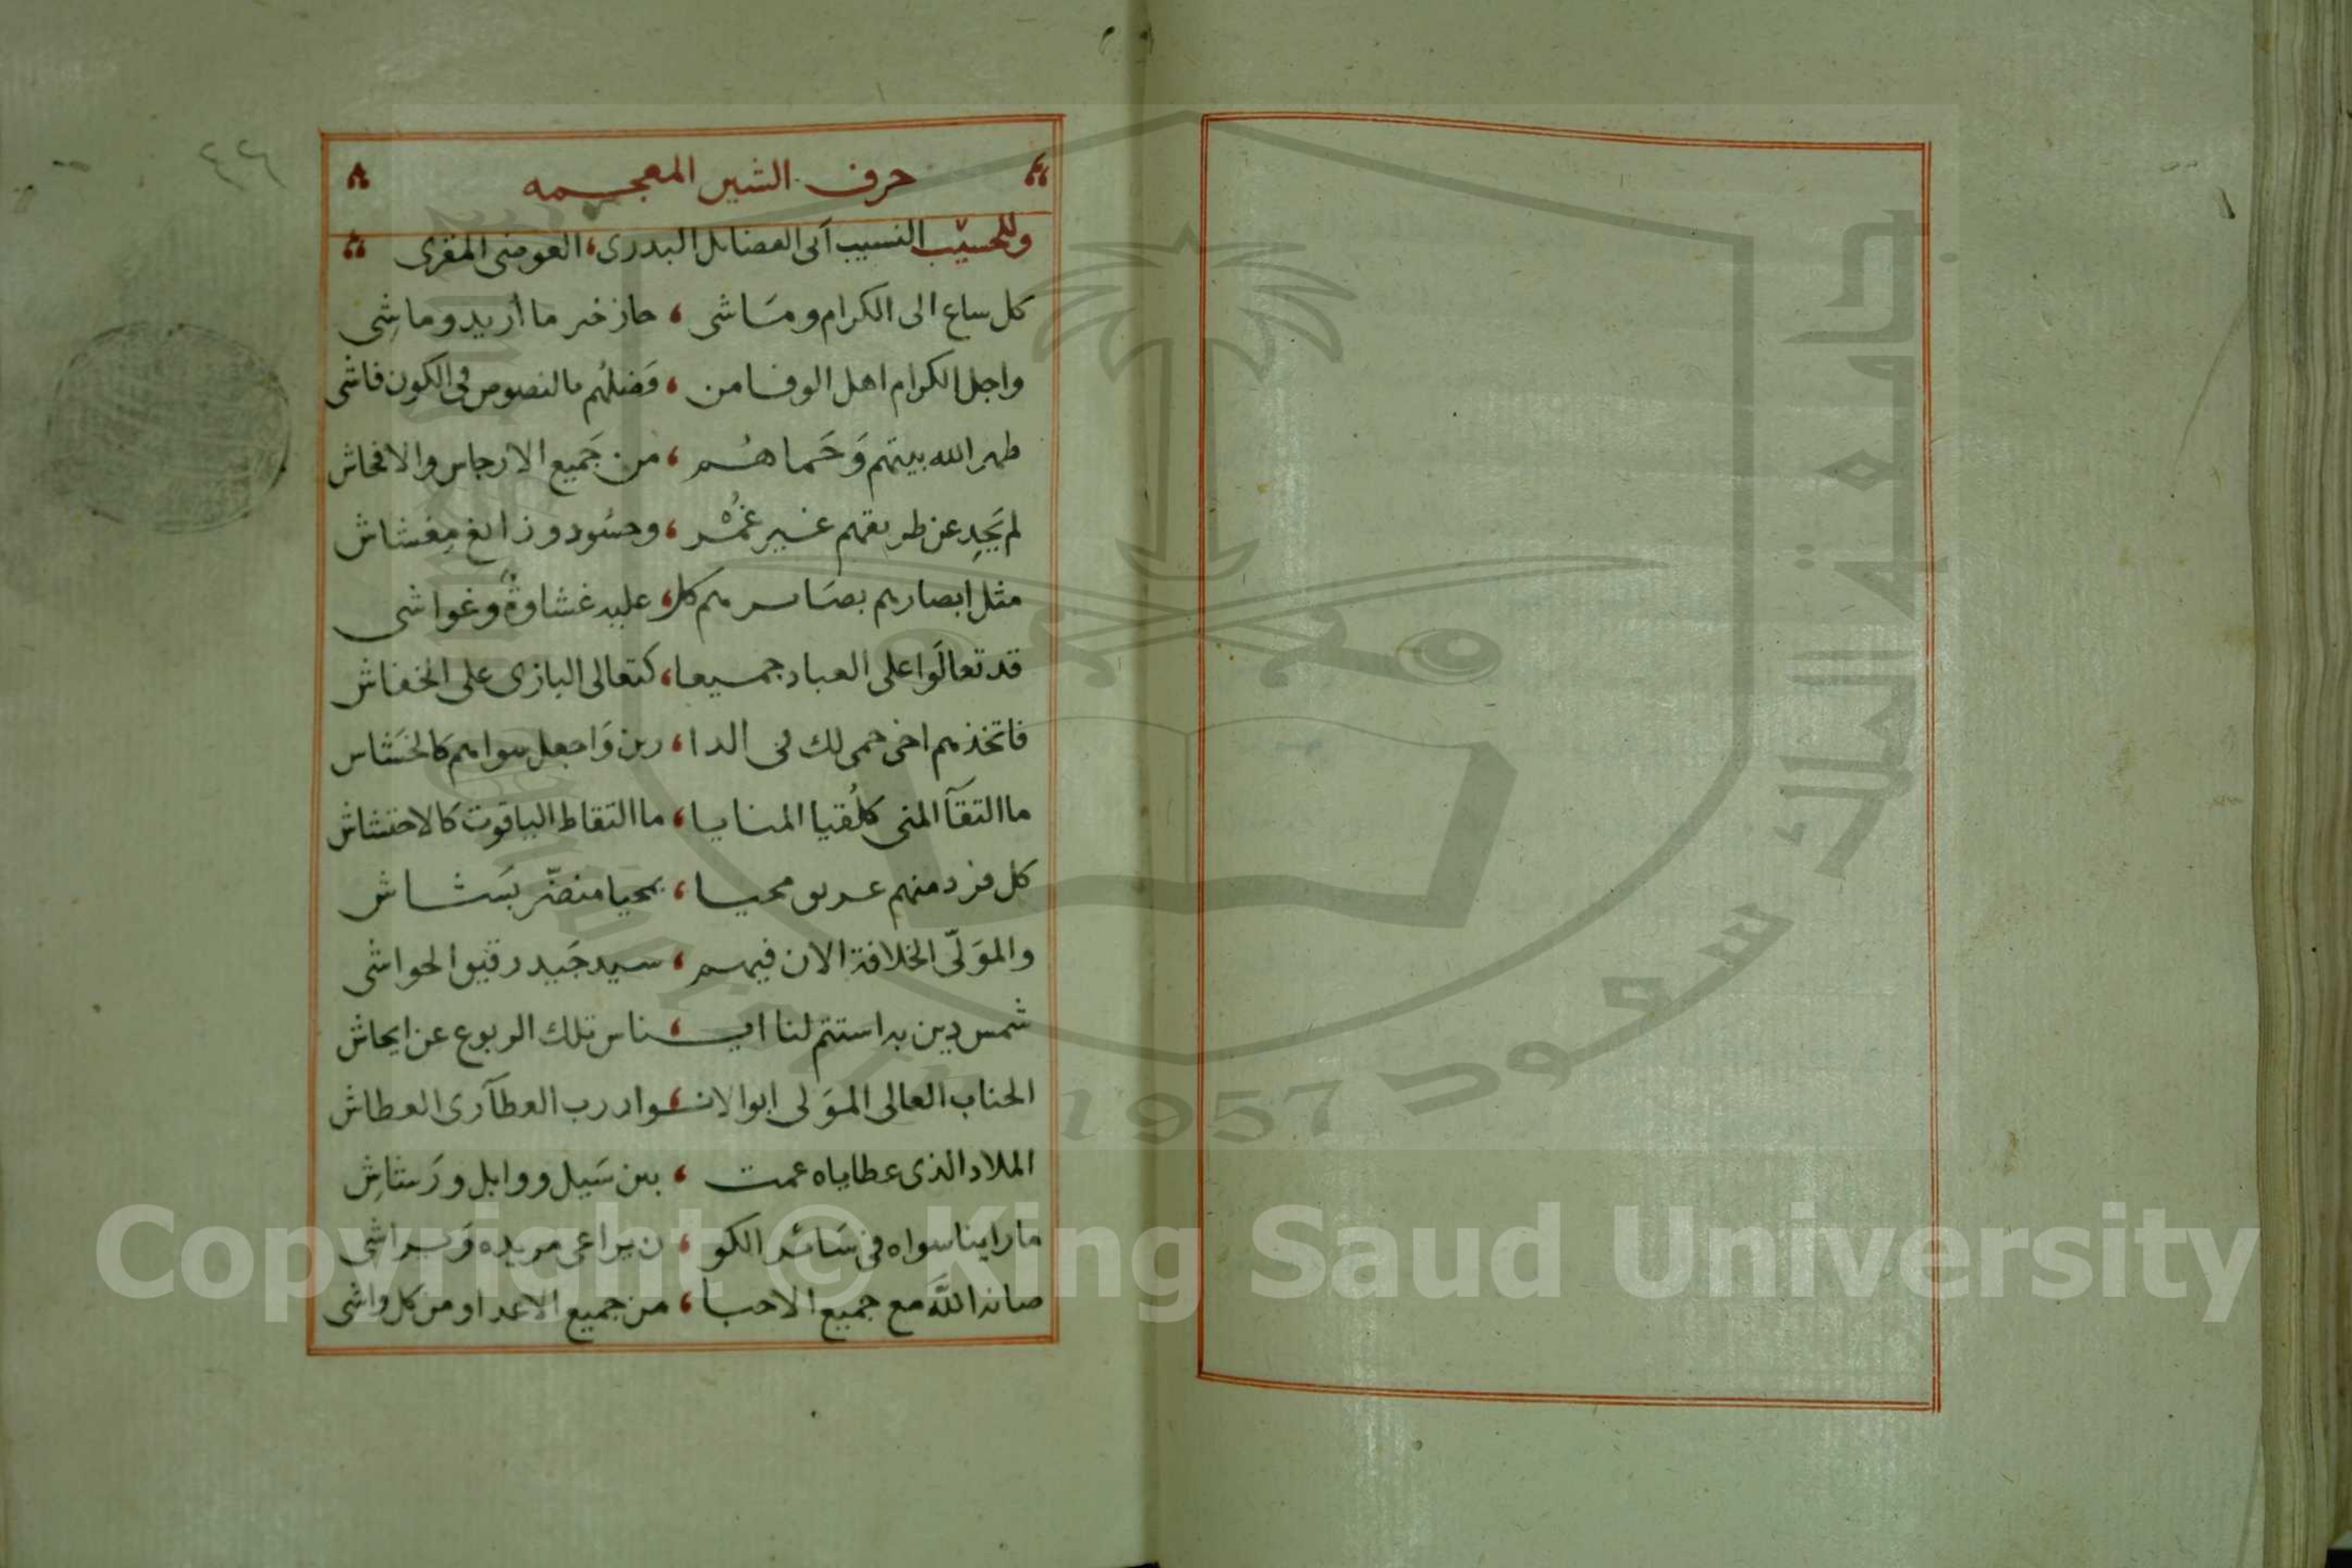 حرف الشين المعجمه
وللحسيب النسيب أبى الفضايل البدرى، العوضى المقرى
كل ساع الى الكرام ومَاشى ، حاز خير ما أريد وماشِى
واجل الكرام اهل الوفا من ، فَضلهُم بالنصوص فى الكون فاشى
طهر الله بيتهم وَحَماهُم ، من جَميع الارجاس والافحاش
لم يَحِد عن طريقهم غير غمُر ، وحسُود وزايغ مِغشاش
مثل ابصارهم بصَايرهم كل ، عليه غشاوةٌ وغواشى
قد تعالَوا على العباد جميعا ، كتعالى البازى على الخفاش
فاتخذهم اخى حمى لك فى الدا ، رين وَاجعل سواهم كالخشاش
ما التقآ المنى كلُقيا المنايا ، ما التقاط الياقوت كالاحتشاش
كل فرد منهم محيا ، بمحيا منضّر بَشاش
والموَلّى الخلافة الان فيهم ، سيد جَيد رقيق الحواشى
شمس دين به استتم لنا ايـ ، ـناس تلك الربوع عن ايحاش
الجناب العالى الموَلى ابو الانـ ، ـوار رب العطآ رى العطاش
الملاد الذى عطاياه عمت ، بين سَيل ووابل ورَشاشِ
ما راينا سواه فى سَائر الكو ، ن يراعى مريده وَيراشى
صانه اللَّه مع جميع الاحبا ، من جميع الاعدا ومن كل واشى
٤٢٦
جامعة الملك سعود
1957
Copyright © King Saud University